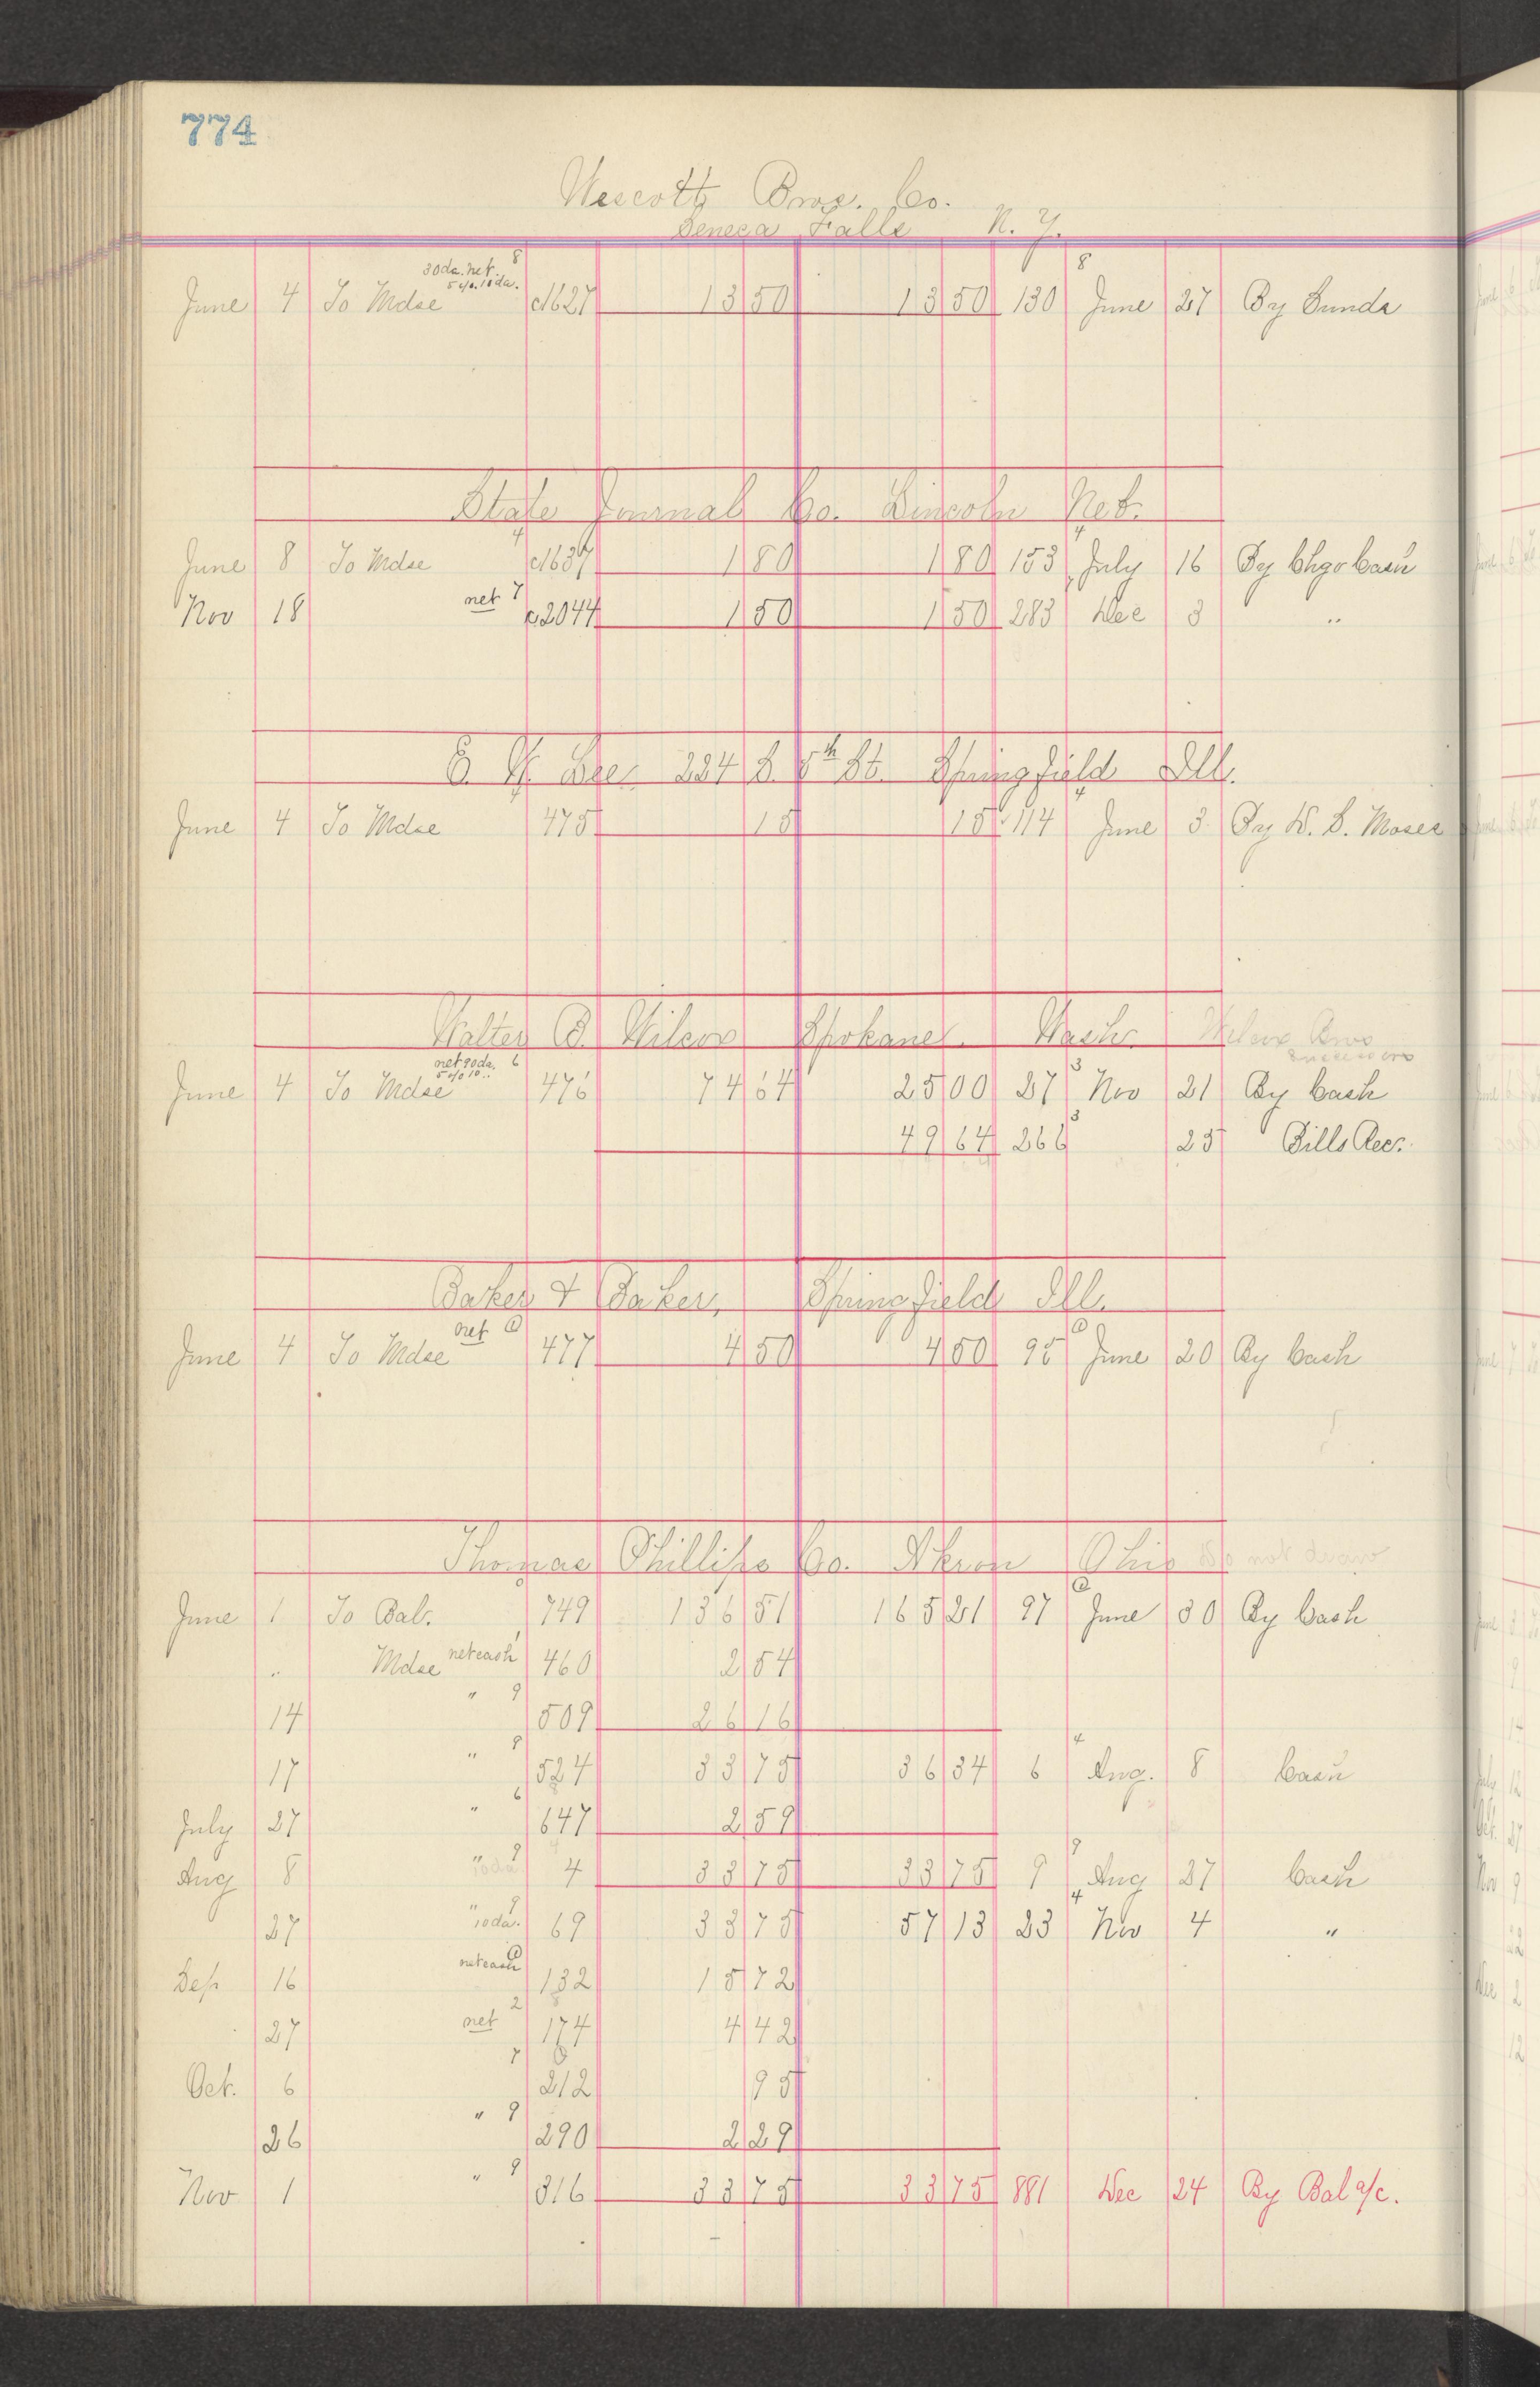 774
Wescott Bros. Co.
Seneca Falls N. Y.
30 da. net. 8
5 c/o. 10 da. 8
June 4 To Mdse c1627 13 50 13 50 130 June 27 By Sunds
State Journal Co. Lincoln Neb.
June 8 To Mdse 4 c1637 1 80 1 80 153 4 July 16 By Chgo Cash
Nov 18 net 7 c2044 1 50 1 50 283 Dec 3 "
224 S. St. Springfield Ill.
June 4 To Mdse 475 15 15 114 4 June 3 By W. S. Moses
Walter B. Wilcox Spokane Wash. Wilcox Bros
successors
net 90 da. 6
5 c/o 10 ..
June 4 To Mdse 476 74 64 25 00 27 3 Nov 21 By Cash
49 64 266 3 25 Bills Rec.
Baker & Baker, Springfield Ill.
June 4 To Mdse net 477 4 50 4 50 95 June 20 By Cash
Thomas Phillips Co. Akron Ohio Do not draw
June 1 To Bal. 749 136 51 165 21 97 June 30 By Cash
.. Mdse net cash 460 2 54
14 " 9 509 26 16
17 " 9 524 33 75 36 34 6 4 Aug. 8 Cash
July 27 " 6 647 2 59
Aug 8 " 9 4 33 75 33 75 9 9 Aug 27 Cash
27 " 9 10 da. 69 33 75 57 13 23 4 Nov 4 "
Sep 16 net cash 132 15 72
27 net 2 174 4 42
Oct. 6 7 212 95
26 " 9 290 2 29
Nov 1 " 9 316 33 75 33 75 881 Dec 24 By Bal a/c.